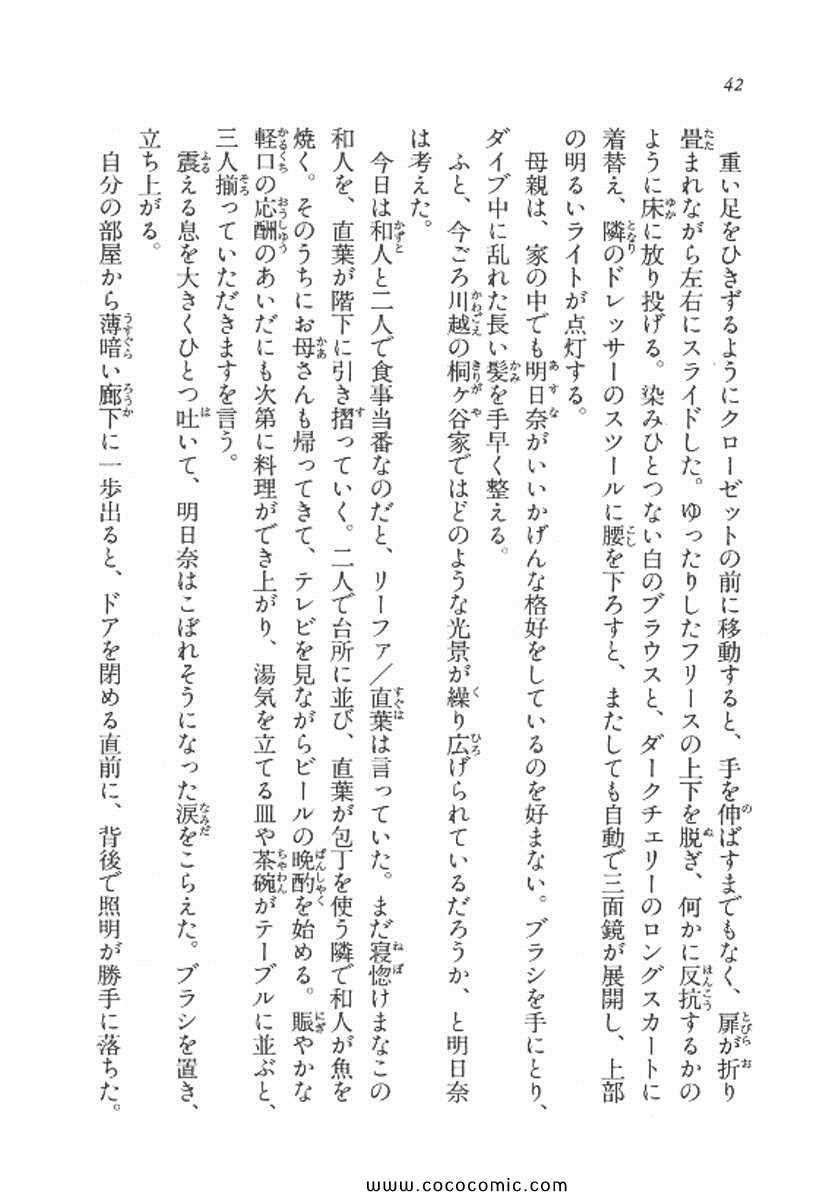 42
重い足をひきずるようにクローゼットの前に移動すると、手を伸ばすまでもなく、扉が折り
畳まれながら左右にスライドした。ゆったりしたフリースの上下を脱ぎ、何かに反抗するかの
ように床に放り投げる。染みひとつない白のブラウスと、ダークチェリーのロングスカートに
着替え、隣のドレッサーのスツールに腰を下ろすと、またしても自動で三面鏡が展開し、上部
の明るいライトが点灯する。
母親は、家の中でも明日奈がいいかげんな格好をしているのを好まない。ブラシを手にとり、
ダイブ中に乱れた長い髪を手早く整える。
ふと、今ごろ川越の桐ヶ谷家ではどのような光景が繰り広げられているだろうか、と明日奈
は考えた。
今日は和人と二人で食事当番なのだと、リーファ／直葉は言っていた。まだ寝惚けまなこの
和人を、直葉が階下に引き摺っていく。二人で台所に並び、直葉が包丁を使う隣で和人が魚を
焼く。そのうちにお母さんも帰ってきて、テレビを見ながらビールの晩酌を始める。賑やかな
軽口の応酬のあいだにも次第に料理ができ上がり、湯気を立てる皿や茶碗がテーブルに並ぶと、
三人揃っていただきますを言う。
震える息を大きくひとつ吐いて、明日奈はこぼれそうになった涙をこらえた。ブラシを置き、
立ち上がる。
自分の部屋から薄暗い廊下に一歩出ると、ドアを閉める直前に、背後で照明が勝手に落ちた。
www.cococomic.com